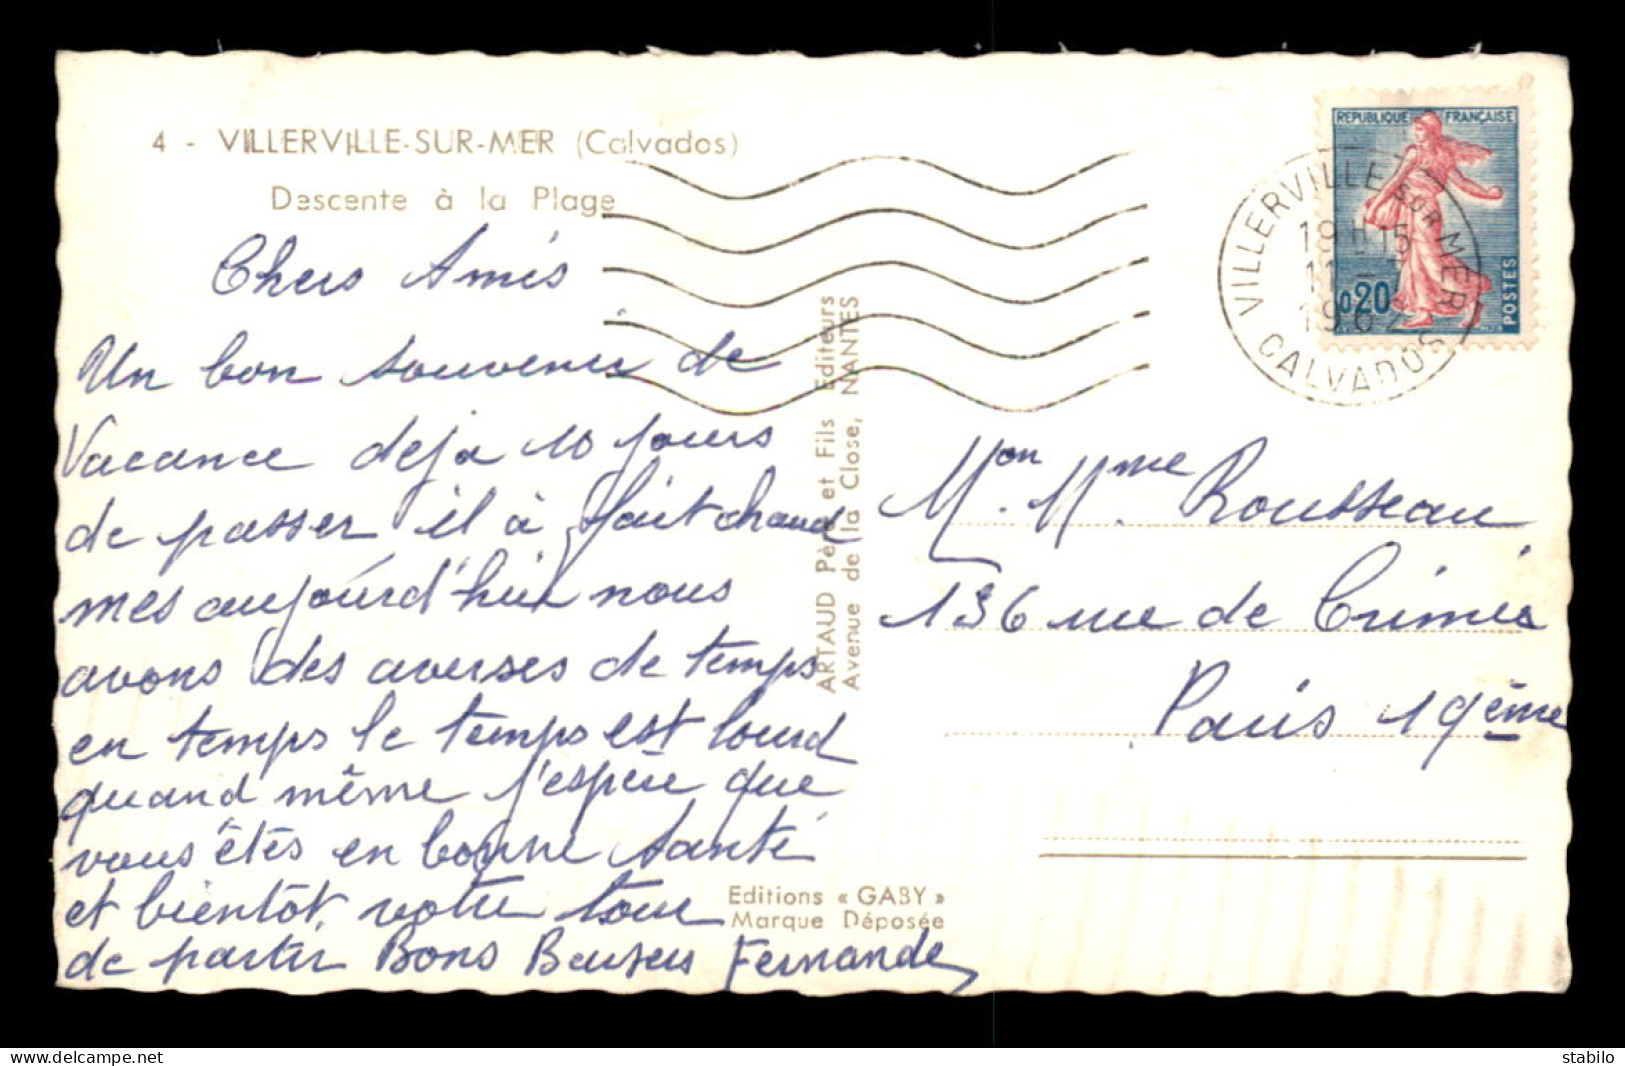 4 - VILLERVILLE-SUR-MER (Calvados)
Descente à la Plage
Chers Amis
Un bon souvenir de
Vacance deja 10 jours
de passer il à fait chaud
mes aujourd'hui nous
avons des averses de temps
en temps le temps est lourd
quand même j'espère que
vous êtes en bonne santé
et bientôt votre tour
de partir Bons Beusers Fernande
ARTAUD Père et Fils Editeurs
Avenue de la Close, NANTES
Editions « GABY »
Marque Déposée
REPUBLIQUE FRANÇAISE
0,20
POSTES
VILLERVILLE SUR MER
19 H 15
1962
CALVADOS
Mon. Mme. Rousseau
136 rue de Crimée
Paris 19ème
www.delcampe.net
stabilo